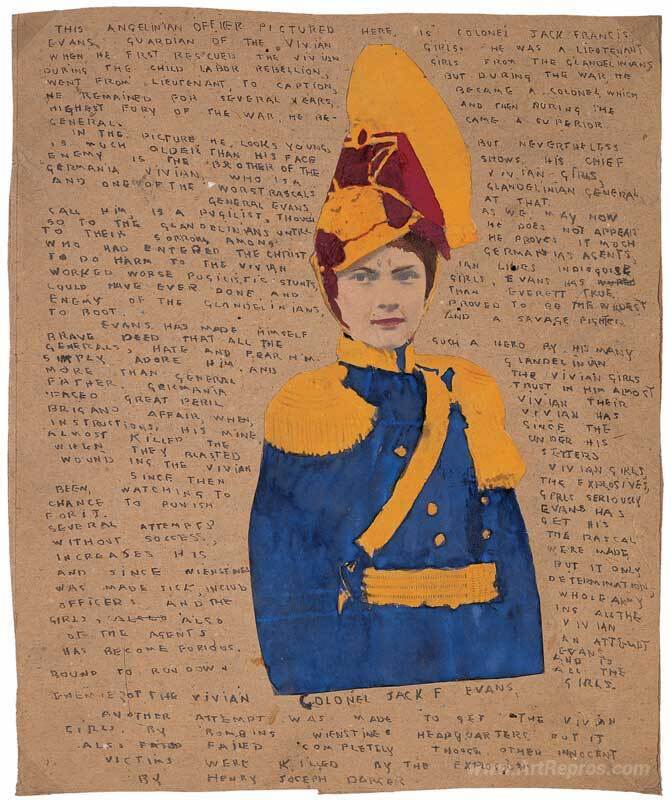 THIS ANGELINIAN OFFICER PICTURED HERE, IS COLONEL JACK FRANCIS
EVANS, GUARDIAN OF THE VIVIAN GIRLS. HE WAS A LIEUTENANT
WHEN HE FIRST RESCUED THE VIVIAN GIRLS FROM THE GLANDELINIANS
DURING THE CHILD LABOR REBELLION, BUT DURING THE WAR HE
WENT FROM LIEUTENANT, TO CAPTION, BECAME A COLONEL WHICH
HE REMAINED FOR SEVERAL YEARS, AND THEN DURING THE
HIGHEST FURY OF THE WAR, HE BE- CAME A SUPERIOR
GENERAL.
IN THE PICTURE HE LOOKS YOUNG, BUT NEVERTHELESS
IS MUCH OLDER THAN HIS FACE SHOWS. HIS CHIEF
ENEMY IS THE BROTHER OF THE VIVIAN GIRLS,
GERMANIA VIVIAN, WHO IS A GLANDELINIAN GENERAL
AND ONE OF THE WORST RASCALS AT THAT.
GENERAL EVANS AS WE MAY NOW
CALL HIM, IS A PUGILIST, THOUGH HE DOES NOT APPEAR
SO TO THE GLANDELINIANS UNTIL HE PROVES IT MUCH
TO THEIR SORROW, AMONG GERMANIAS AGENTS,
WHO HAD ENTERED THE CHRIST IAN LINES INDISGUISE
TO DO HARM TO THE VIVIAN GIRLS, EVANS HAS
WORKED WORSE PUGILISTIC STUNTS, THAN EVERETT TRUE,
COULD HAVE EVER DONE AND PROVED TO BE THE
ENEMY OF THE GLANDELINIANS, AND A SAVAGE FIGHTER
TO BOOT.
EVANS HAS MADE HIMSELF SUCH A HERO BY HIS MANY
BRAVE DEED THAT ALL THE GLANDELINIAN
GENERALS, HATE AND FEAR HIM. THE VIVIAN GIRLS
SIMPLY ADORE HIM, AND TRUST IN HIM ALMOST
MORE THAN GENERAL VIVIAN THEIR
FATHER. GERMANIA VIVIAN HAS
FACED GREAT PERIL SINCE THE
BRIGAND AFFAIR, WHEN, UNDER HIS
INSTRUCTIONS, HIS MINE SETTERS
ALMOST KILLED THE VIVIAN GIRLS
WHEN THEY BLASTED THE EXPLOSIVES,
WOUNDING THE VIVIAN GIRLS SERIOUSLY
SINCE THEN EVANS HAS
BEEN, WATCHING TO GET HIS
CHANCE TO PUNISH THE RASCAL
FOR IT.
SEVERAL ATTEMPTS WERE MADE
WITHOUT SUCCESS, BUT IT ONLY
INCREASES HIS DETERMINATION,
AND SINCE WIENSTINE WHOLE ARMY
WAS MADE SICK, INCLUD ING ALL THE
OFFICERS AND THE VIVIAN
GIRLS, ALSO ALSO AN ATTEMPT
OF THE AGENTS EVANS
HAS BECOME FURIOUS. AND IS
BOUND TO RUN DOWN ALL THE
ENEMIE OF THE VIVIAN GIRLS.
COLONEL JACK F EVANS.
ANOTHER ATTEMPT WAS MADE TO GET THE VIVIAN
GIRLS BY BOMBING WIENSTINES HEADQUARTERS BUT IT
ALSO FAILED COMPLETELY THOUGH OTHER INNOCENT
VICTIMS WERE KILLED BY THE EXPLOSION
BY HENRY JOSEPH DARGER
www.ArtRepros.com